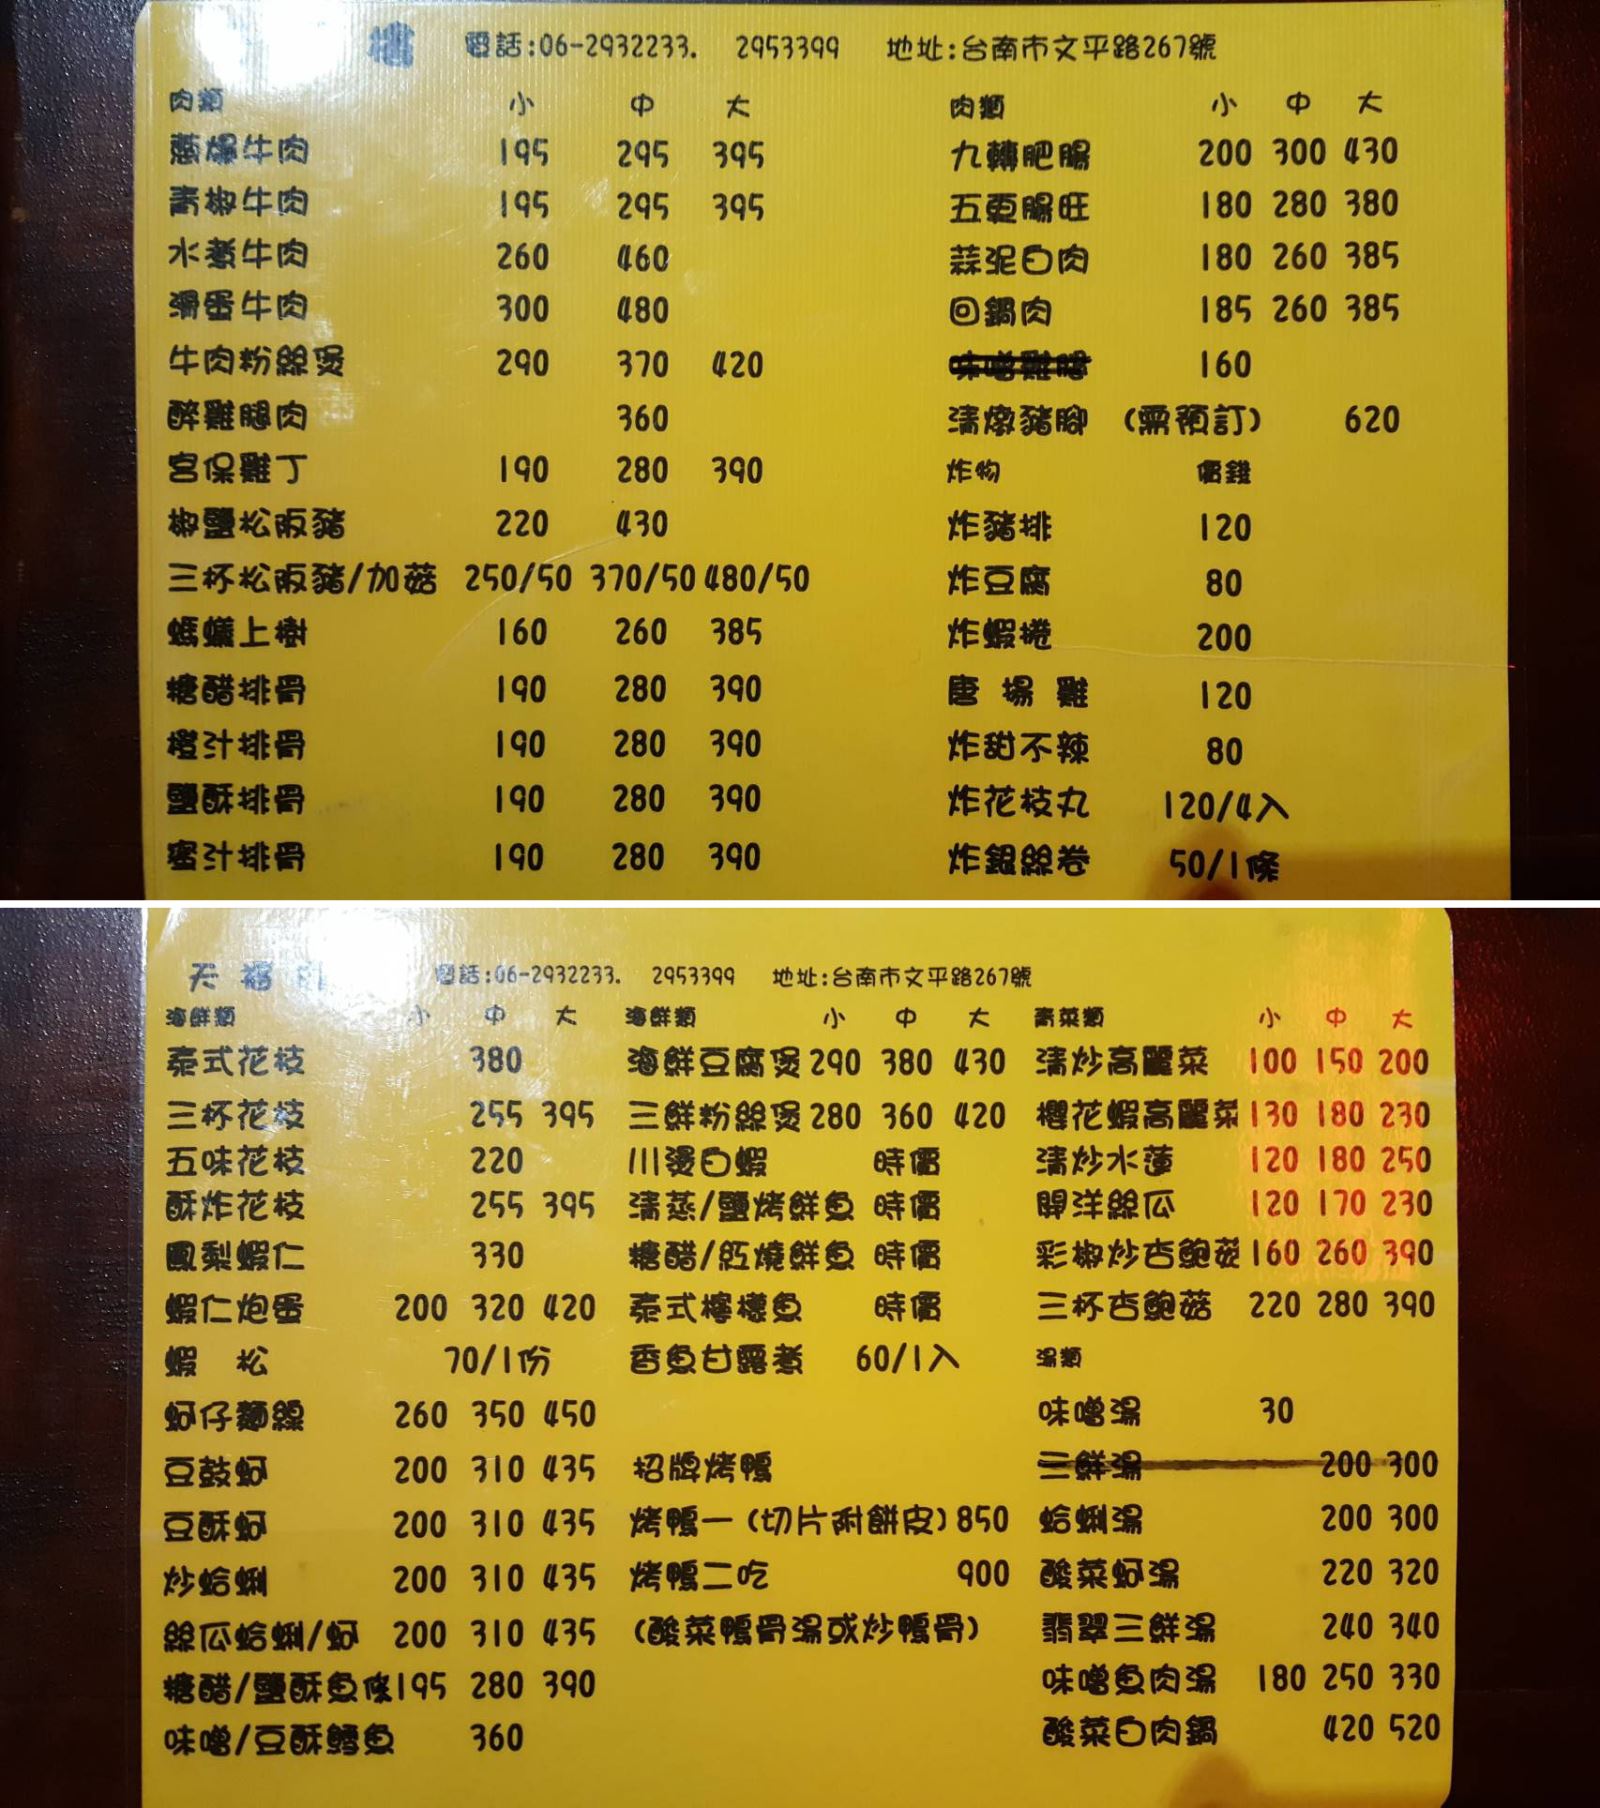 樓 電話:06-2932233. 2953399 地址:台南市文平路267號
肉類 小 中 大
蔥爆牛肉 195 295 395
青椒牛肉 195 295 395
水煮牛肉 260 460
滑蛋牛肉 300 480
牛肉粉絲煲 290 370 420
醉雞腿肉 360
宮保雞丁 190 280 390
椒鹽松阪豬 220 430
三杯松阪豬/加菇 250/50 370/50 480/50
螞蟻上樹 160 260 385
糖醋排骨 190 280 390
橙汁排骨 190 280 390
鹽酥排骨 190 280 390
蜜汁排骨 190 280 390
肉類 小 中 大
九轉肥腸 200 300 430
五更腸旺 180 280 380
蒜泥白肉 180 260 385
回鍋肉 185 260 385
味噌雞腿 160
清燉豬腳 (需預訂) 620
炸物 價錢
炸豬排 120
炸豆腐 80
炸蝦捲 200
唐揚雞 120
炸甜不辣 80
炸花枝丸 120/4入
炸銀絲卷 50/1條
天福 電話:06-2932233. 2953399 地址:台南市文平路267號
海鮮類 小 中 大
泰式花枝 380
三杯花枝 255 395
五味花枝 220
酥炸花枝 255 395
鳳梨蝦仁 330
蝦仁炮蛋 200 320 420
蝦 松 70/1份
蚵仔麵線 260 350 450
豆鼓蚵 200 310 435
豆酥蚵 200 310 435
炒蛤蜊 200 310 435
絲瓜蛤蜊/蚵 200 310 435
糖醋/鹽酥魚條 195 280 390
味噌/豆酥鱈魚 360
海鮮類 小 中 大
海鮮豆腐煲 290 380 430
三鮮粉絲煲 280 360 420
川燙白蝦 時價
清蒸/鹽烤鮮魚 時價
糖醋/紅燒鮮魚 時價
泰式檸檬魚 時價
香魚甘露煮 60/1入
招牌烤鴨
烤鴨一(切片附餅皮) 850
烤鴨二吃 900
(酸菜鴨骨湯或炒鴨骨)
青菜類 小 中 大
清炒高麗菜 100 150 200
櫻花蝦高麗菜 130 180 230
清炒水蓮 120 180 250
開洋絲瓜 120 170 230
彩椒炒杏鮑菇 160 260 390
三杯杏鮑菇 220 280 390
湯類
味噌湯 30
三鮮湯 200 300
蛤蜊湯 200 300
酸菜蚵湯 220 320
翡翠三鮮湯 240 340
味噌魚肉湯 180 250 330
酸菜白肉鍋 420 520